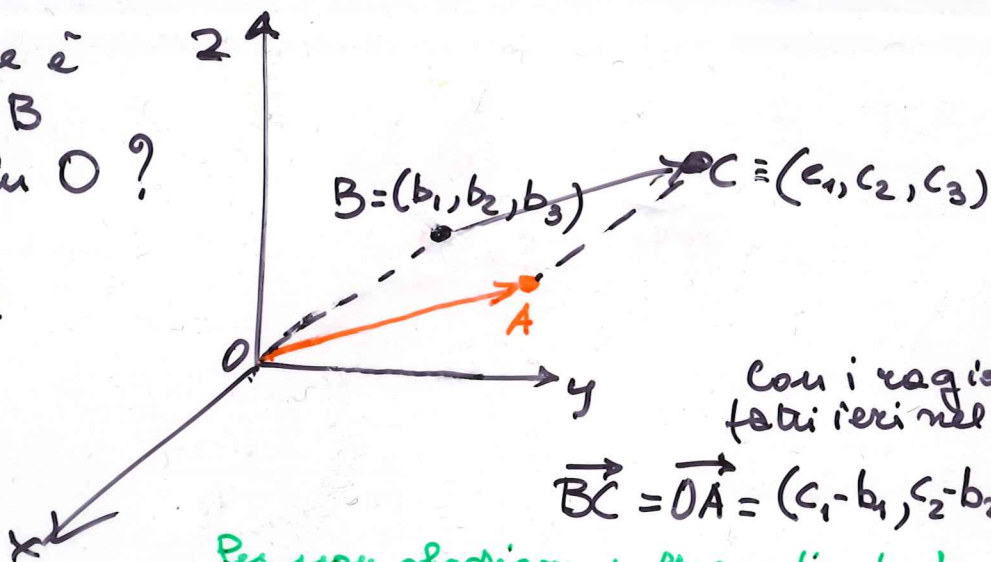 e è
B
in O ?
z
B=(b₁,b₂,b₃)
C ≡ (c₁,c₂,c₃)
A
O
y
x
con i ragio
fatti ieri nel
BC = OA = (c₁-b₁, c₂-b₂
Per